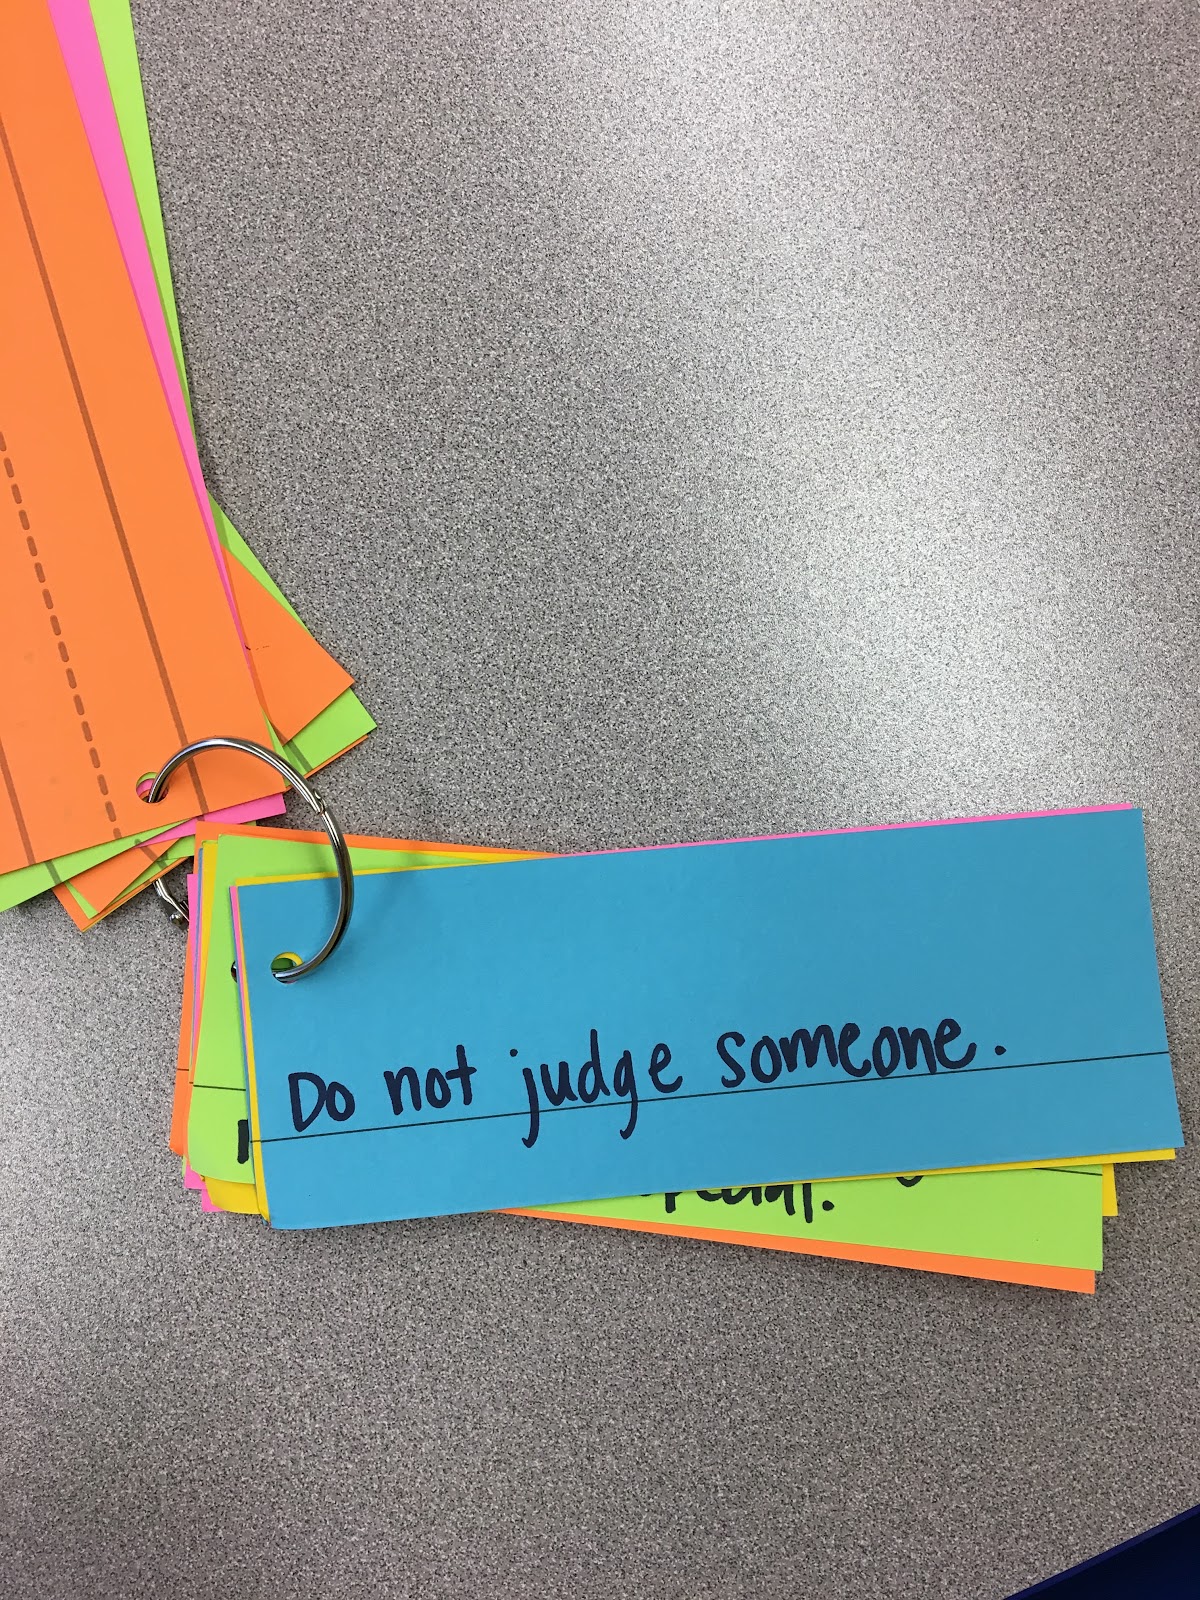 Do not judge someone.
special.